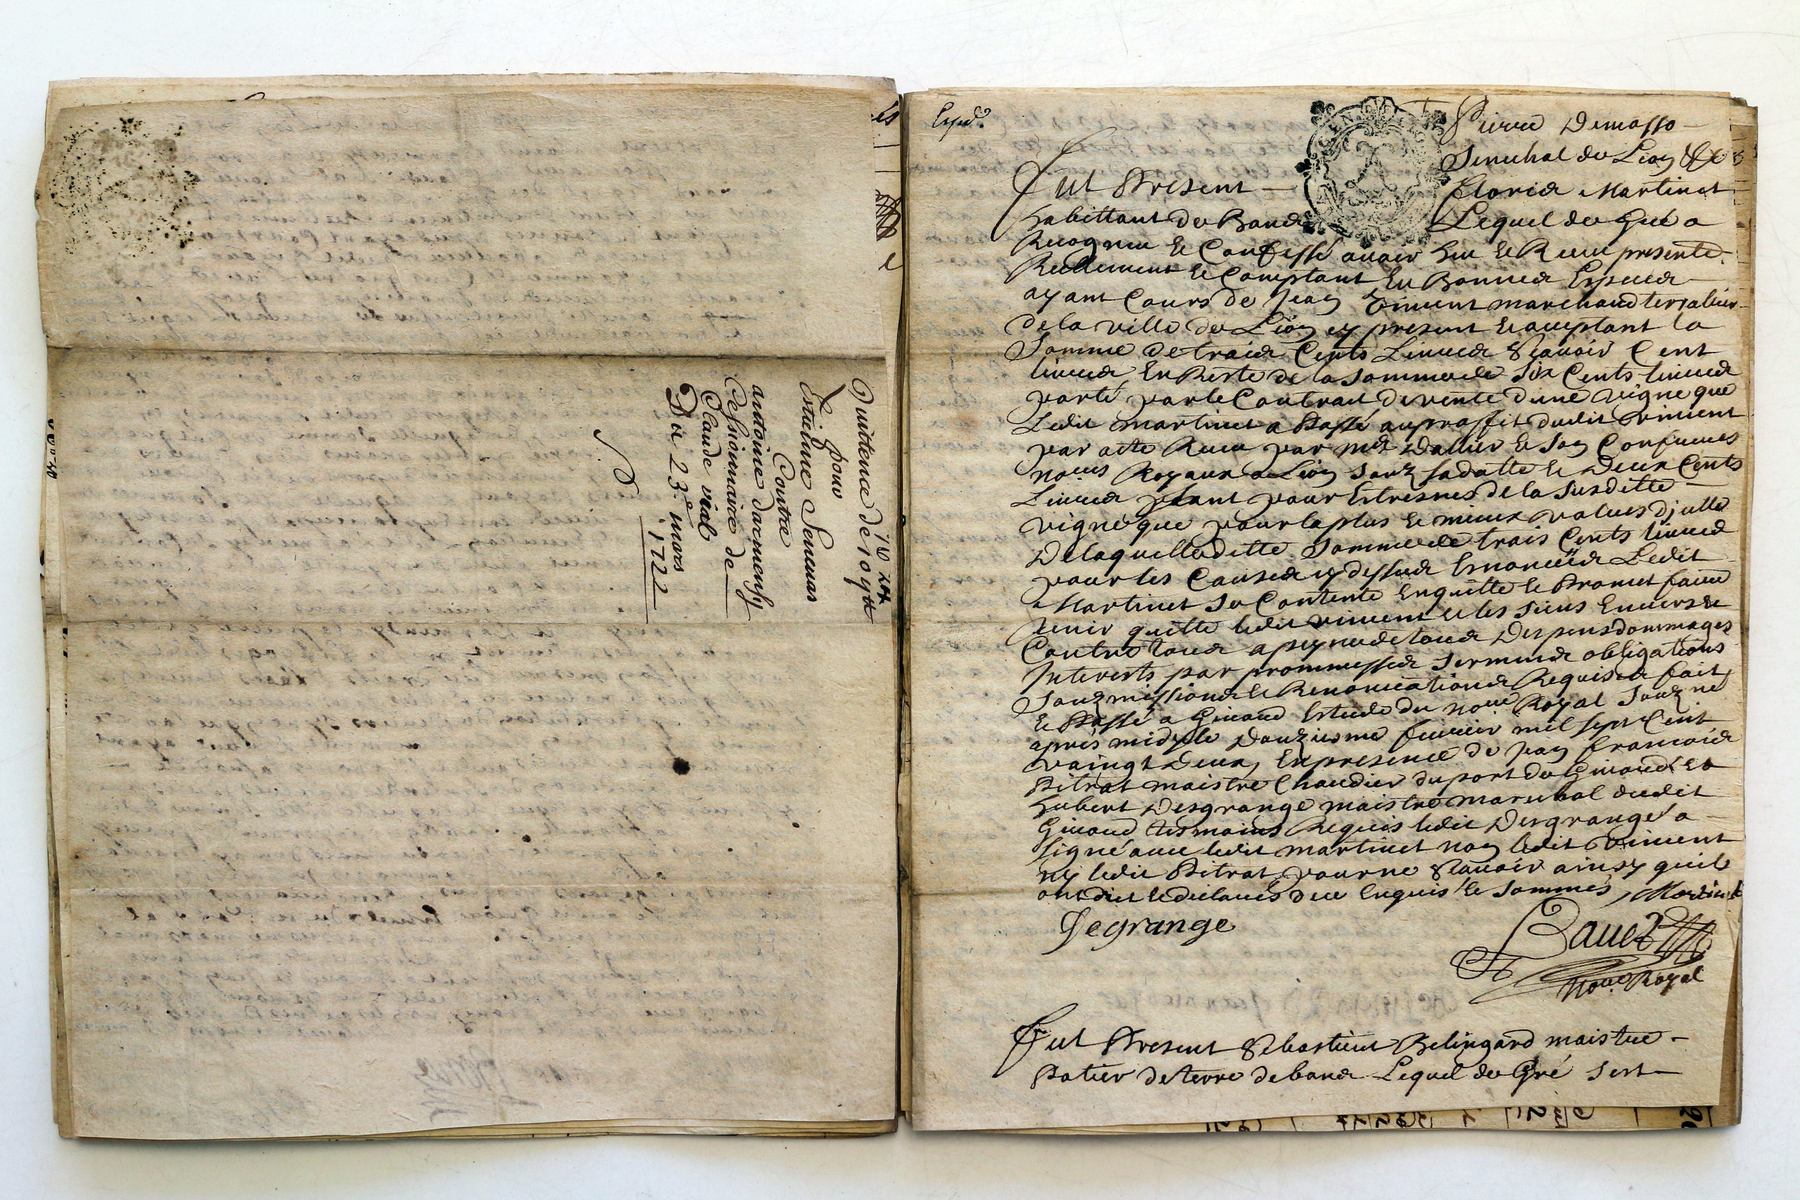 Quittence de 109ᵗᵗ
10ˢ
pour
Estienne
Contre
antoine darmensy
Cessionnaire de
Claude vial
Du 23ᵉ mars
1722
Expᵈᵒ
Pierre Demasso
Senechal de Lion &ᶜ
Fut Present
Martinet
habittant de Lequel de Gré a
Recogneu et Confessé avoir heu et Receu presente
Reellement et Comptant En Bonnes Especes
ayant Cours de Jean Vincent marchand
de la ville de Lion cy present et acceptant la
Somme de trois Cents Livres Scavoir Cent
livres En Reste de la Somme de Six Cents livres
porté par le Contract de vente dune vigne que
Ledit Martinet a Passé au proffit dudit Vincent
par acte Receu par mᵉ Dallier et son Confrere
noᵉʳˢ Royaux a Lion Souz sa datte et Deux Cents
Livres pour Estresnes de la Susditte
vigne que pour la plus et mieux value dJcelle
De laquelle ditte Somme de trois Cents livres
pour les Causes cy dessus Enoncées Ledit
Martinet Se Contente En quitte et Promet faire
tenir quitte ledit vincent et les siens Envers et
Contre tous a peyne de tous Despens dommages
Interests par prommesses Serments obligations
Souzmissions et Renonciations Requises fait
et Passé a Givord Estude du Noʳᵉ Royal Souzné
apres midy le Douzieme fevrier mil sept Cent
vaingt Deux En presence de francois
Pitrat maistre Chaudier du port de Givord Et
hubert Desgrange maistre marechal dudit
Givord tesmoins Requis ledit Desgrange a
signé avec ledit martinet non ledit Vincent
ny ledit Pitrat pour ne Scavoir ainsy quils
ont dict et declarés de ce Enquis et Sommés Martinet
Degrange
noʳᵉ Royal
Fut Present Sebastien Belingard maistre
Potier de terre de Lequel de Gré